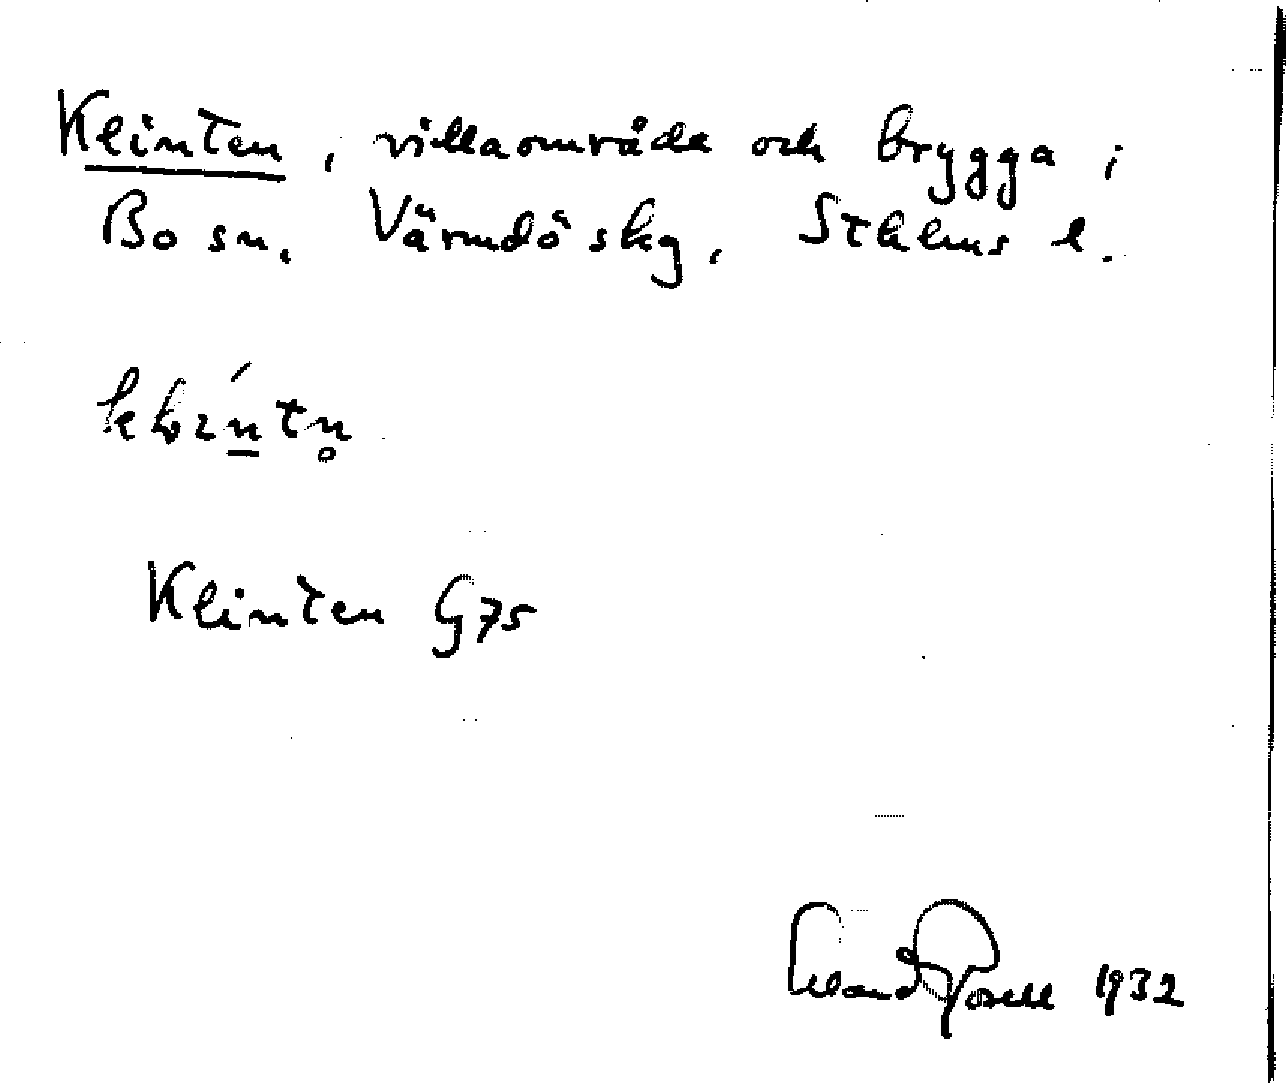 Klinten, villaområde och brygga i
Bo sn. Värmdö skg, Sthlms l.
Klinten G75
Erland Rosell 1932